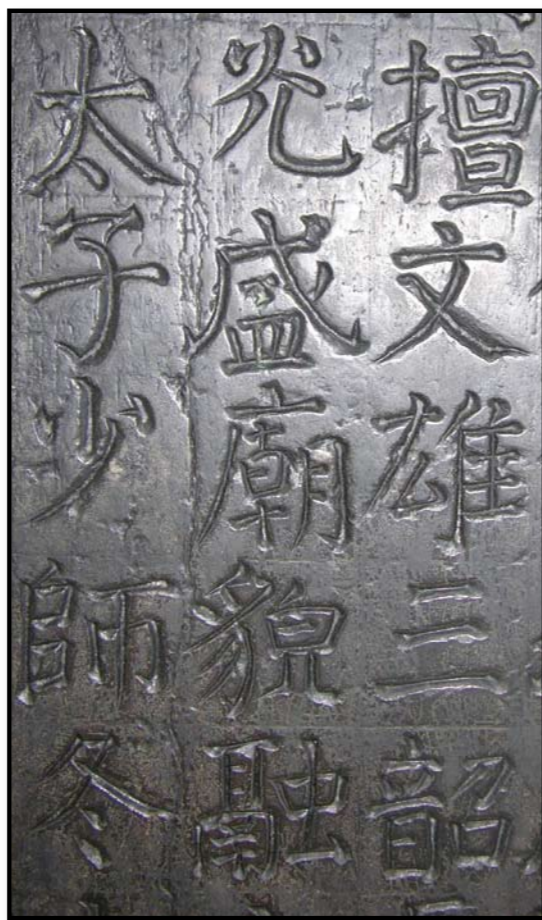 擅文雄三韶
光盛廟貌融
太子少師冬